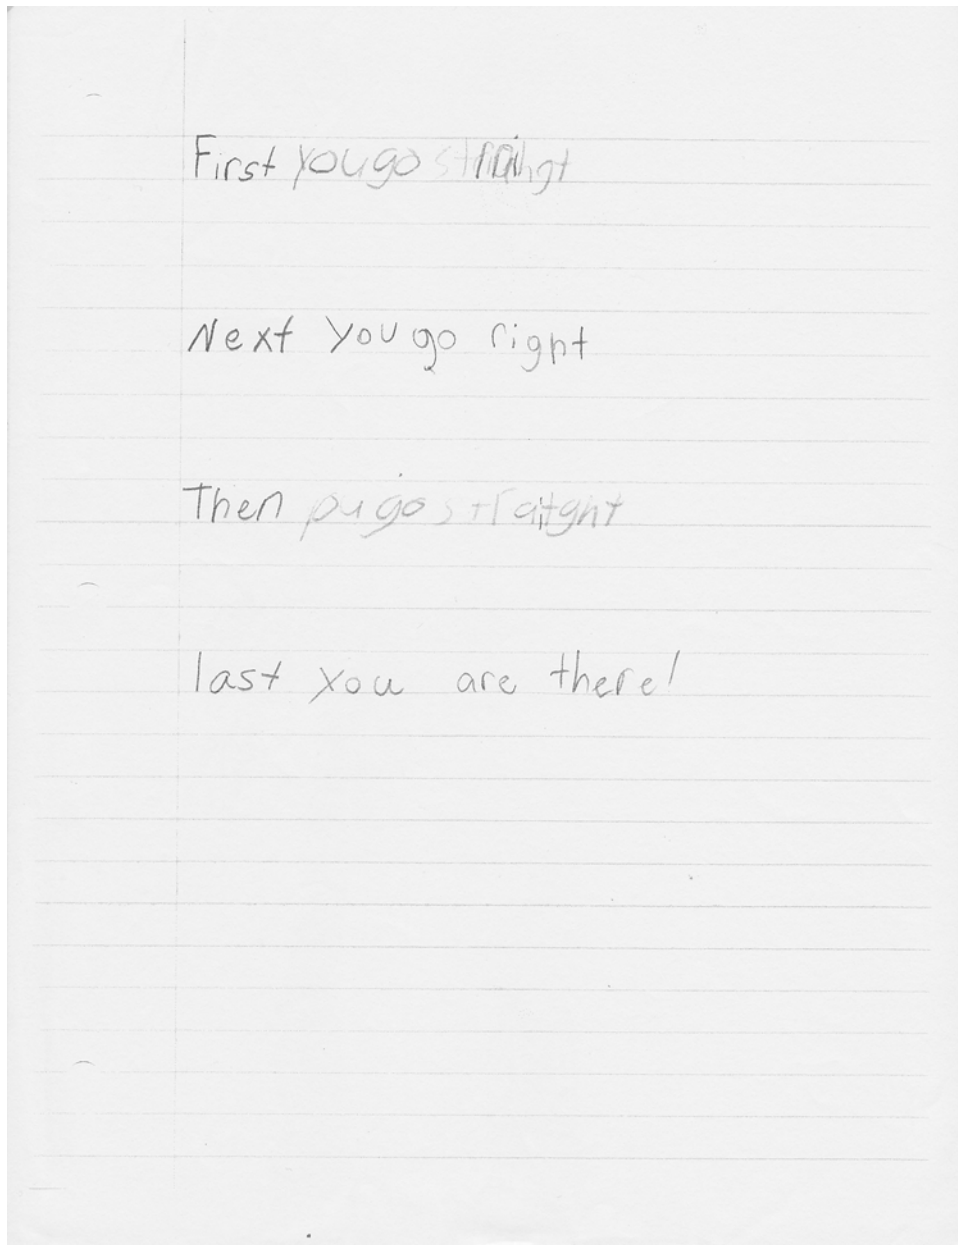 First you go straihgt
Next you go right
Then you go straitght
last you are there!